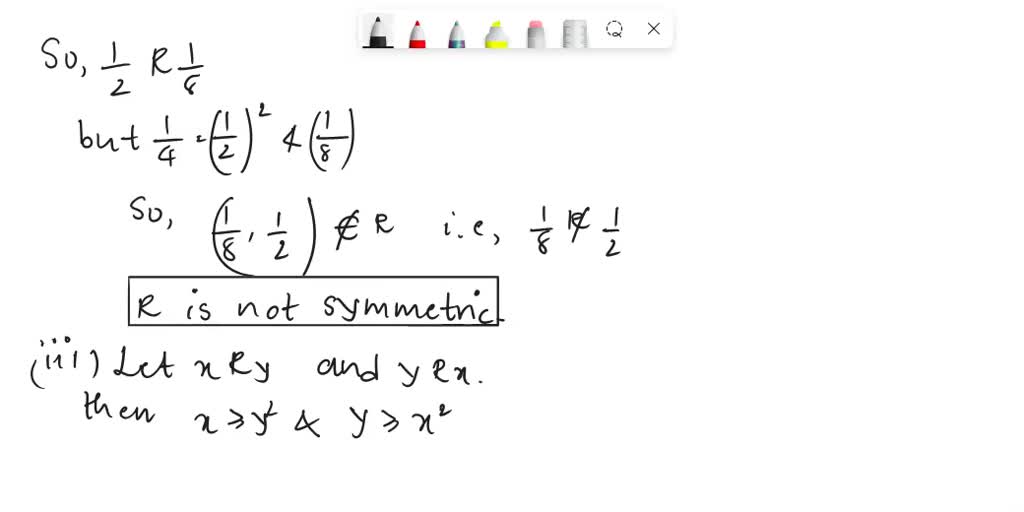 So, 1/2 R 1/8
but 1/4 = (1/2)² ≮ (1/8)
So, (1/8, 1/2) ∉ R i.e, 1/8 R̸ 1/2
R is not symmetric.
(iii) Let x R y and y R x.
then x ⩾ y² & y ⩾ x²